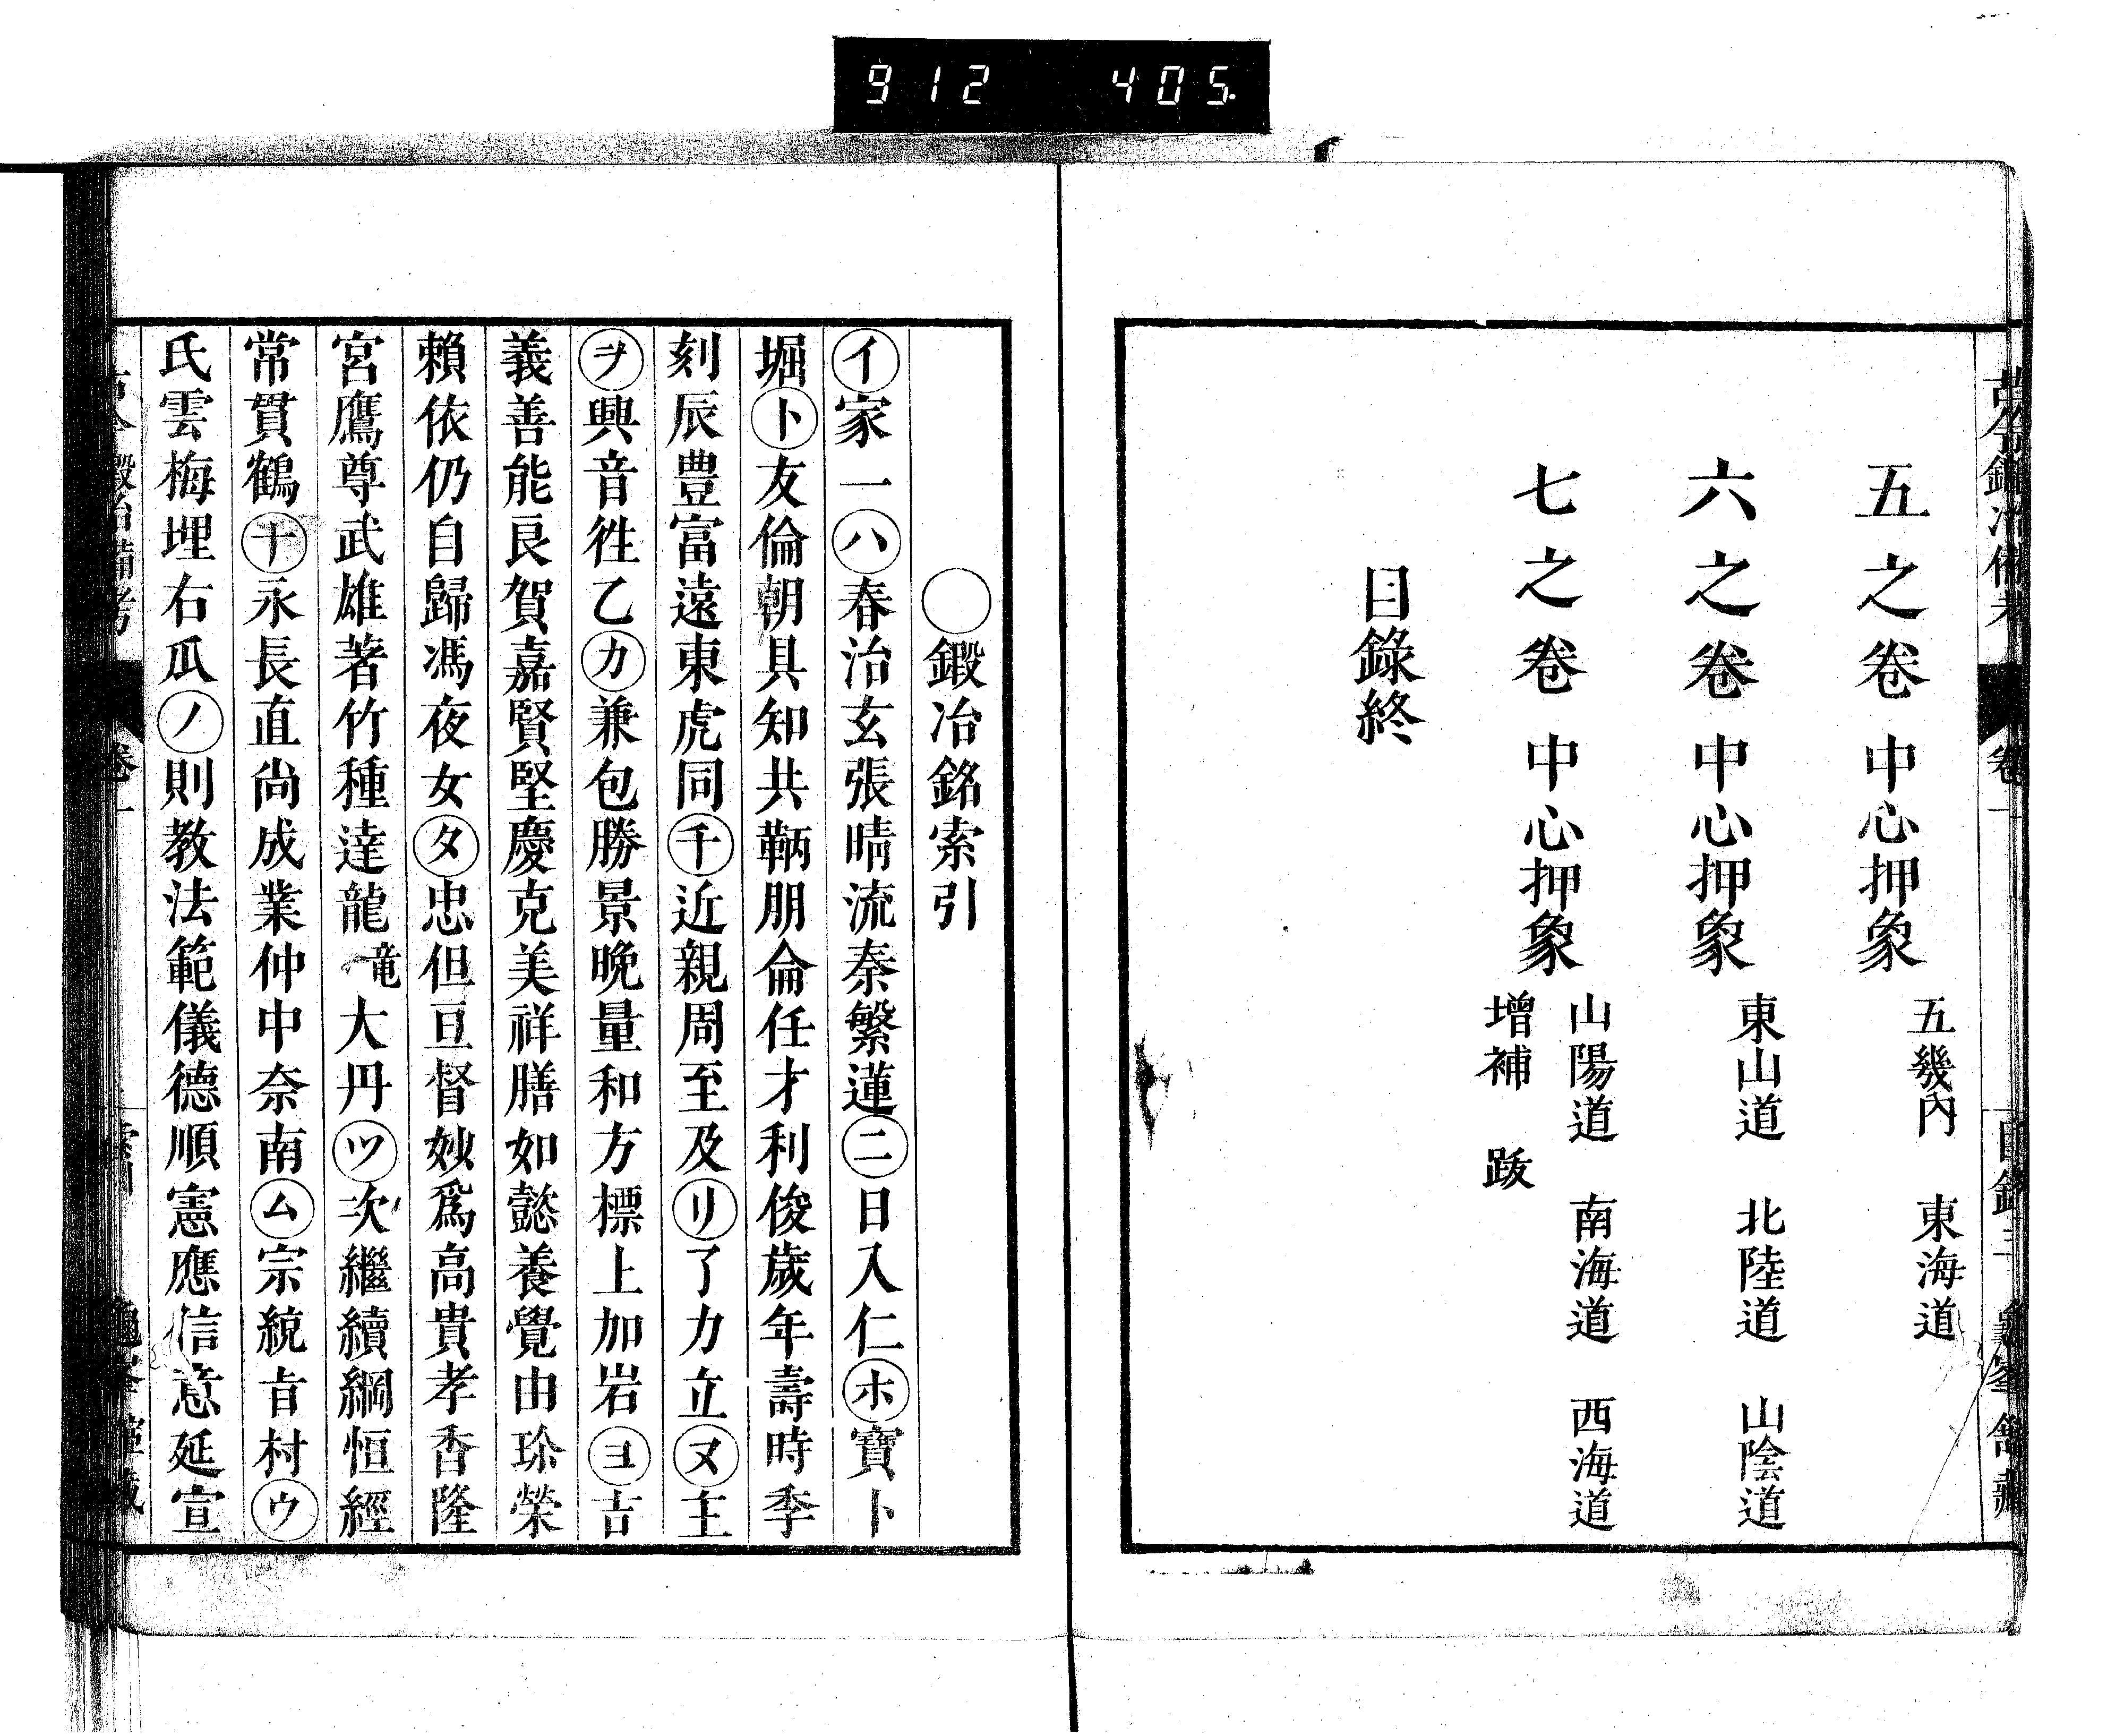 912 405.
五之卷 中心押象 五畿內 東海道
六之卷 中心押象 東山道 北陸道 山陰道
七之卷 中心押象 山陽道 南海道 西海道
增補 跋
目錄終
◯鍛冶銘索引
㋑家一㋩春治玄張晴流秦繁蓮㋥日入仁㋭寶卜
堀㋣友倫朝具知共鞆朋侖任才利俊歲年壽時季
刻辰豐富遠東虎同㋠近親周至及㋷了力立㋦主
㋾興音徃乙㋕兼包勝景晚量和方標上加岩㋵吉
義善能良賀嘉賢堅慶克美祥膳如懿養覺由珎榮
賴依仍自歸馮夜女㋟忠但亘督妙爲高貴孝香隆
宮鷹尊武雄著竹種達龍竜大丹㋡次繼續綱恒經
常貫鶴㋤永長直尙成業仲中奈南㋰宗統旨村㋒
氏雲梅埋右瓜㋨則教法範儀德順憲應信意延宣